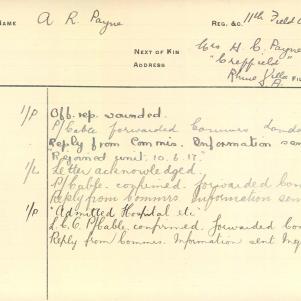 NAME A R Payne REG. &C. 11th Field
NEXT OF KIN Mrs H C Payne
ADDRESS
"Creffield"
Rhine Villa
S A
1/P Off. rep. wounded.
P/Cable forwarded Commrs Lond
Reply from Commrs. Information sen
"Rejoined unit. 10.6.17."
1/L Letter acknowledged.
P/Cable. confirmed. forwarded Com
Reply from Commrs Information sen
1/P "Admitted Hospital etc"
L.C.C. P/Cable. confirmed. forwarded Com
Reply from Commrs. Information sent Inq